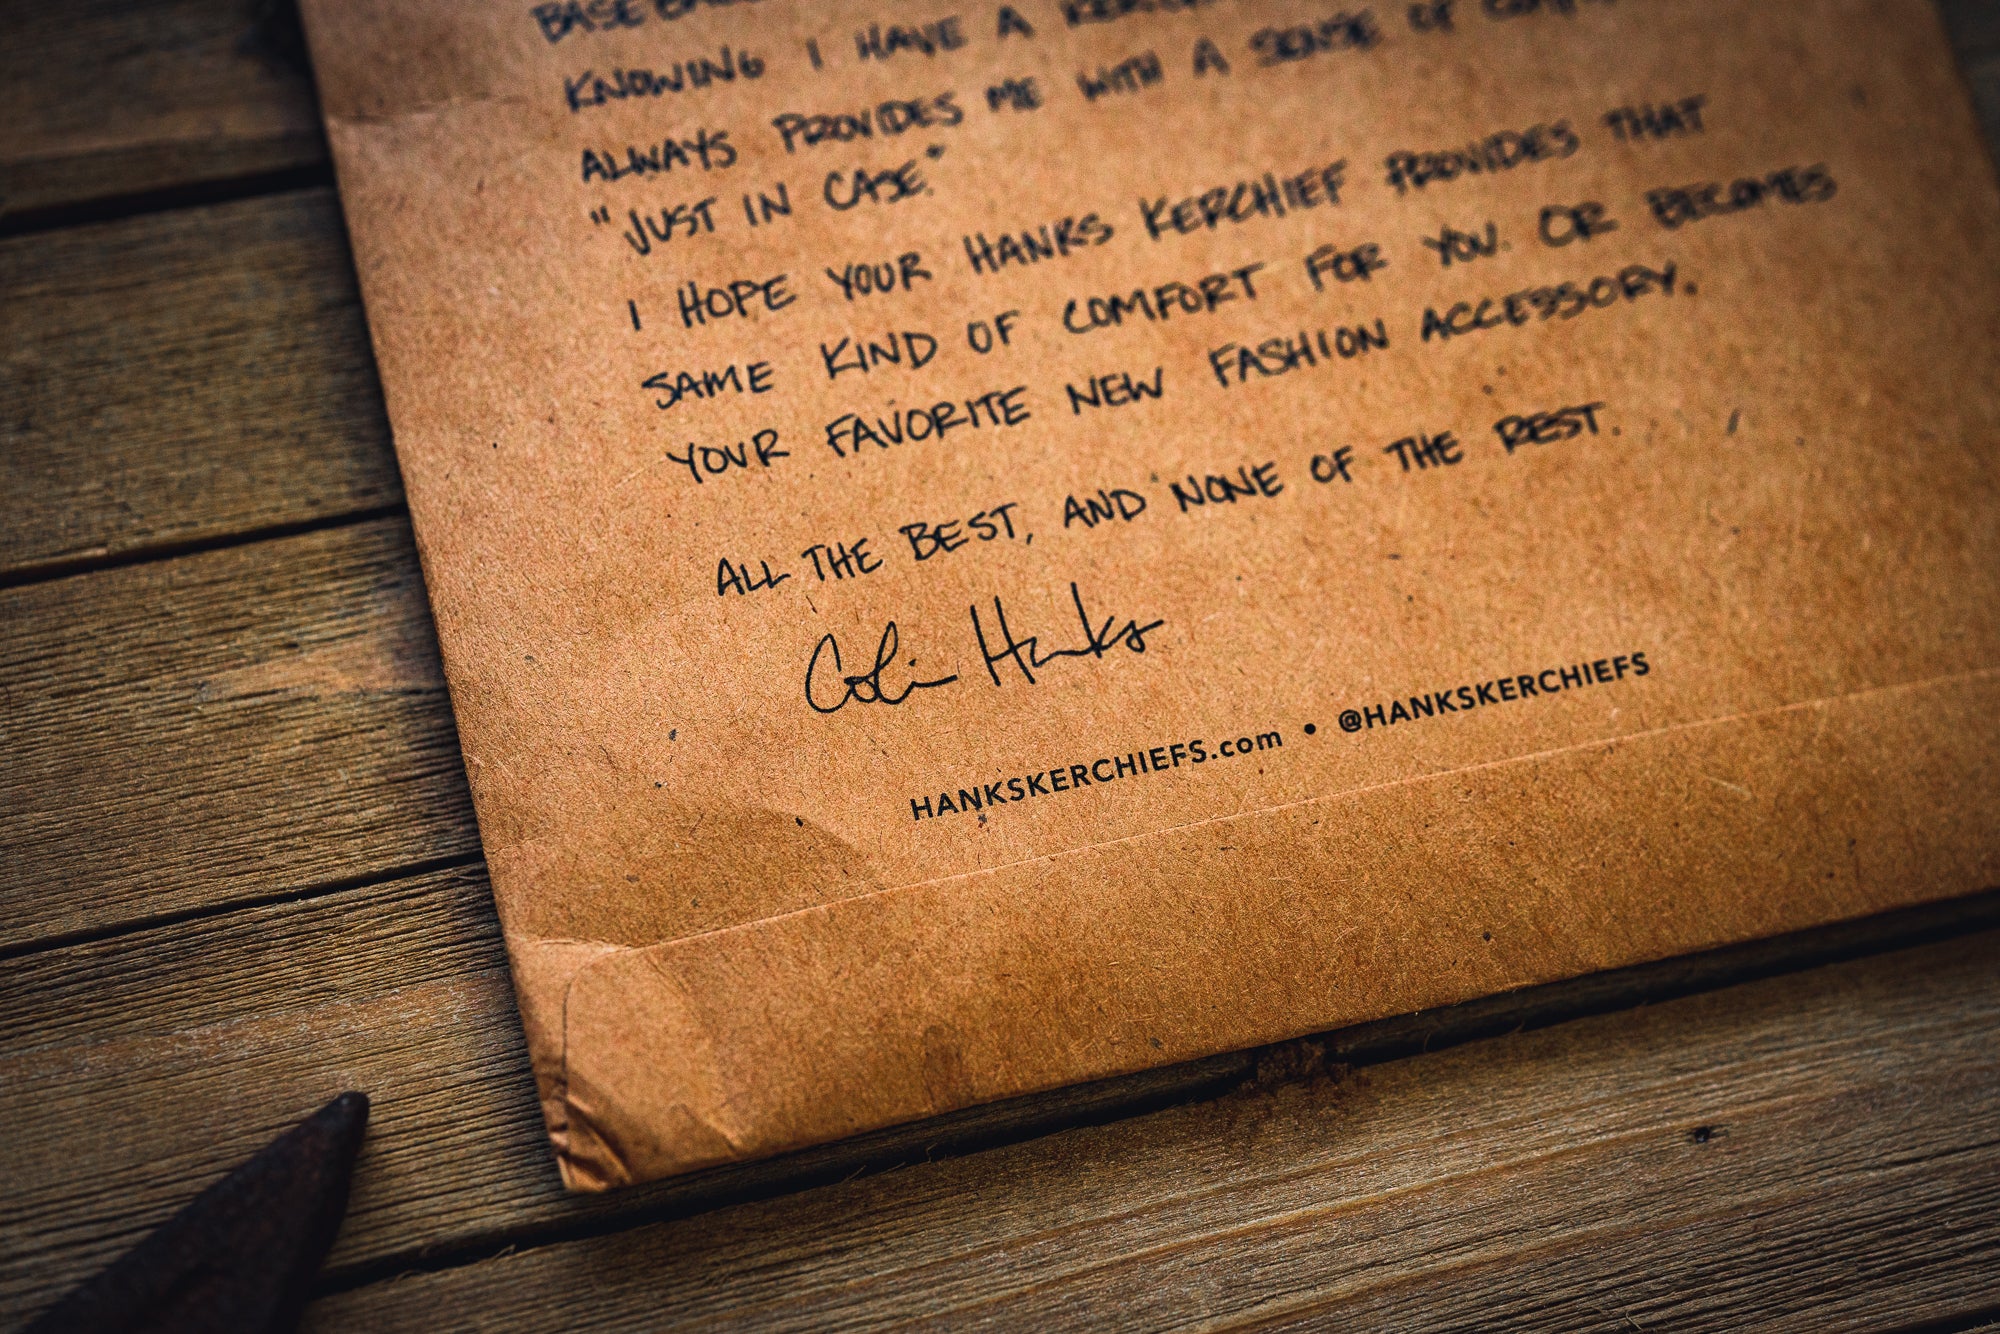 KNOWING I HAVE A
ALWAYS PROVIDES ME WITH A SENSE OF
"JUST IN CASE."
I HOPE YOUR HANKS KERCHIEF PROVIDES THAT
SAME KIND OF COMFORT FOR YOU. OR BECOMES
YOUR FAVORITE NEW FASHION ACCESSORY.
ALL THE BEST, AND NONE OF THE REST.
Colin Hanks
HANKSKERCHIEFS.com • @HANKSKERCHIEFS